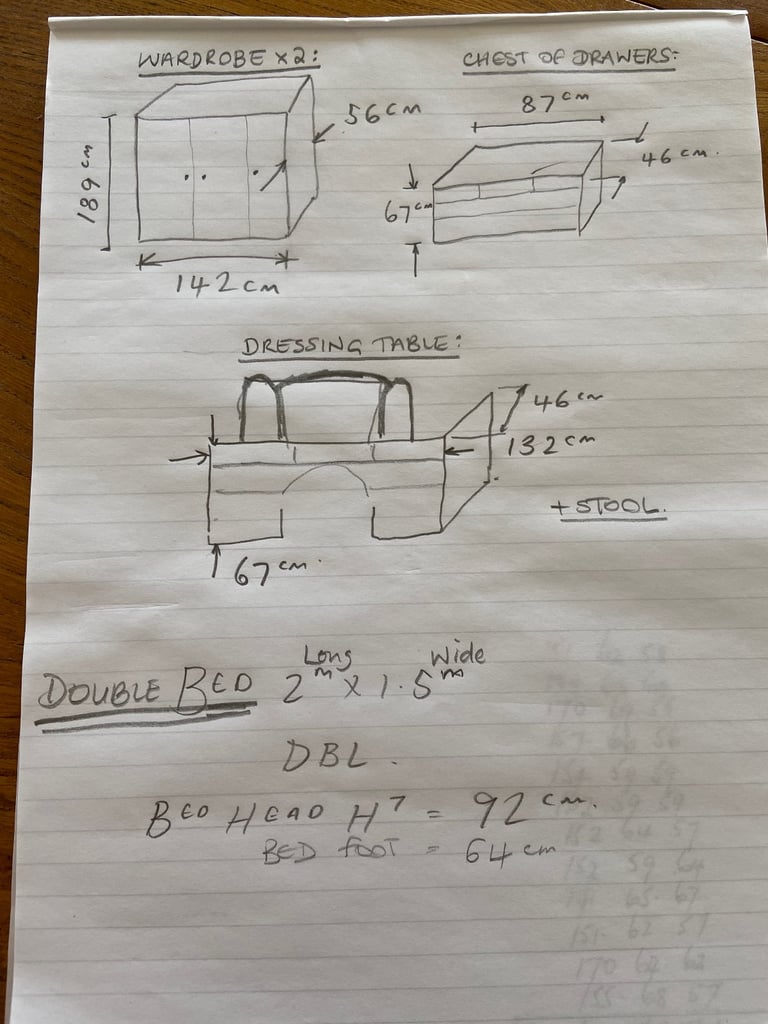 WARDROBE x2:
56 cm
189 cm
142 cm
CHEST OF DRAWERS:
87 cm
46 cm.
67 cm
DRESSING TABLE:
46 cm
132 cm
67 cm.
+ STOOL.
Long Wide
DOUBLE BED 2 m x 1.5 m
DBL.
BED HEAD HT = 92 cm.
BED FOOT = 64 cm